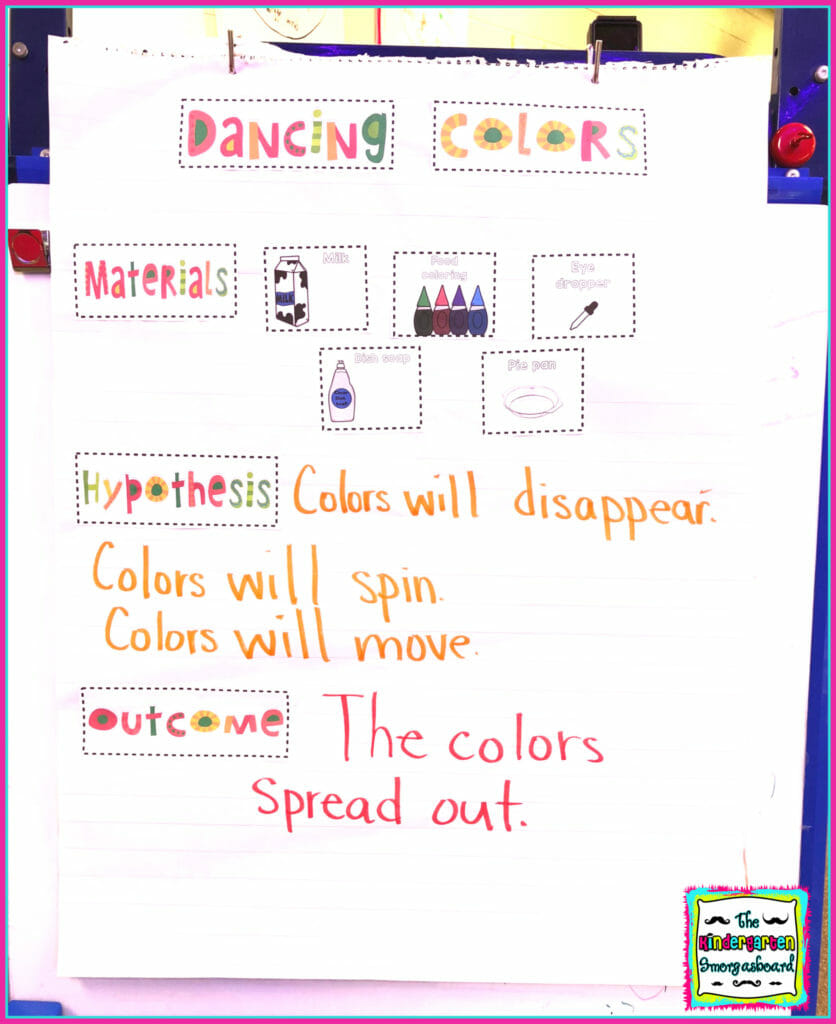 Dancing Colors
Materials
Milk
MILK
Food
coloring
Eye
dropper
Dish soap
Pie pan
Hypothesis Colors will disappear.
Colors will spin.
Colors will move.
Outcome The colors
Spread out.
The
Kindergarten
Smorgasboard